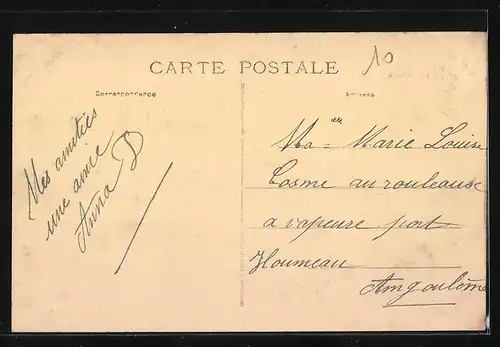 CARTE POSTALE
10
Correspondance
Adresse
Mes amitiés
une amie
Anna D
Marie Louise
Cosme au rouleause
a vapeure port
Houmeau
Angoulême